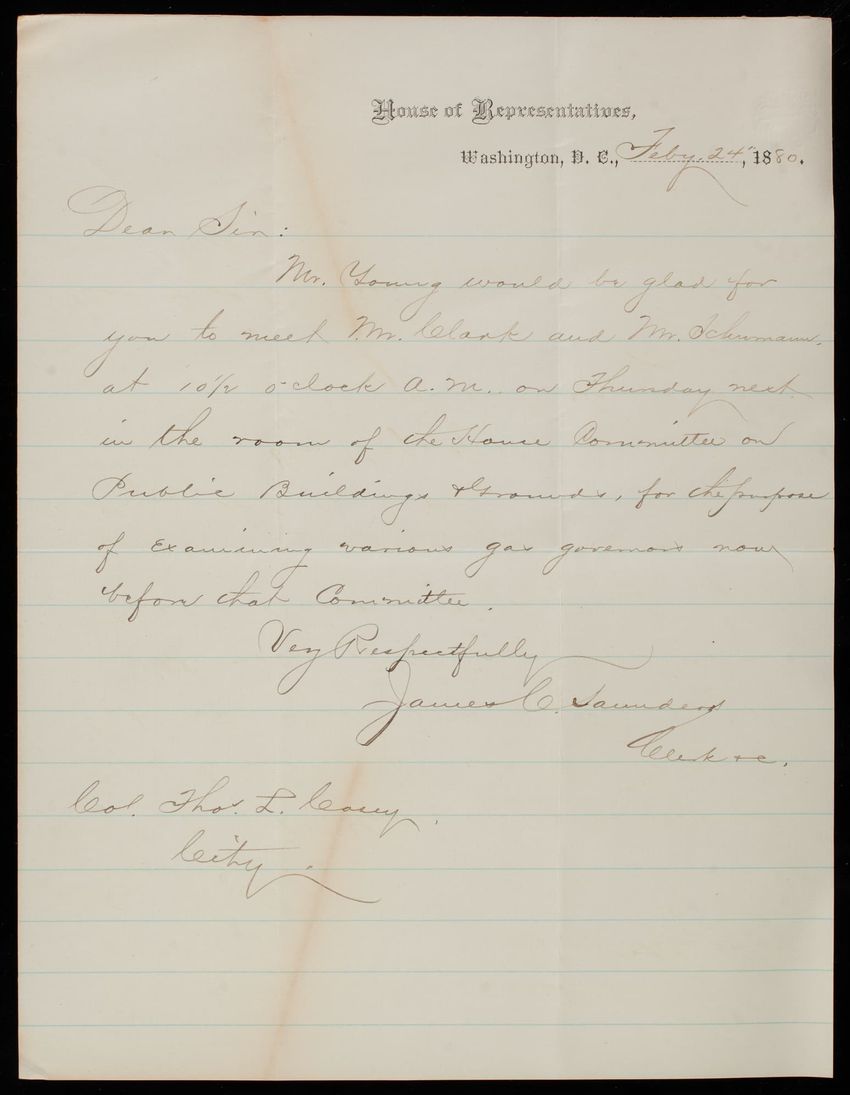 House of Representatives,
Washington, D. C., Feby. 24", 1880.
Dear Sir:
Mr. Young would be glad for
you to meet Mr. Clark and Mr. Schumann,
at 10 1/2 o'clock A.M. on Thursday next
in the room of the House Committee on
Public Buildings & Grounds, for the purpose
of examining various gas governors now
before that Committee.
Very Respectfully
James C. Saunders
Clerk &c.
Col. Thos. L. Casey,
City.